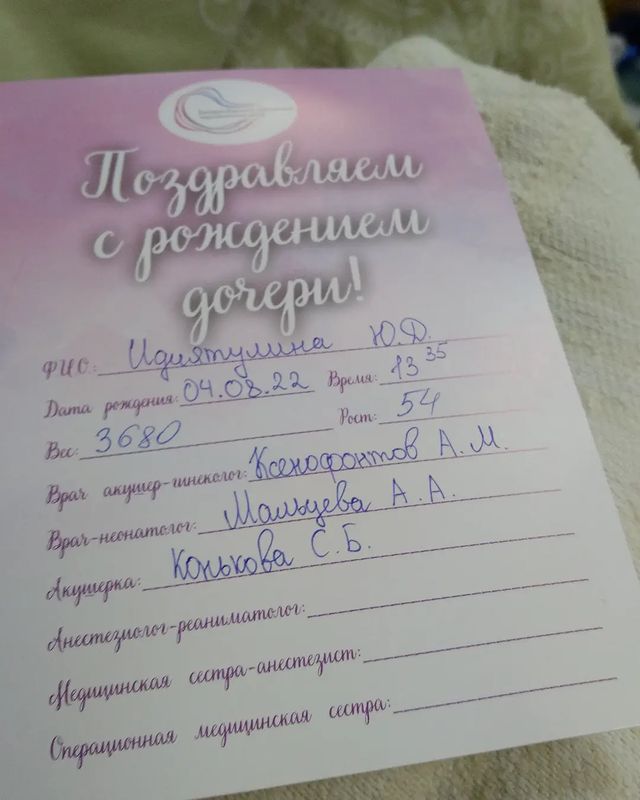 Поздравляем
с рождением
дочери!
ФИО: Идиятулина Ю.Д.
Дата рождения: 04.08.22 Время: 13 35
Вес: 3680 Рост: 54
Врач акушер-гинеколог: Ксенофонтов А.М.
Врач-неонатолог: Мальцева А.А.
Акушерка: Конькова С.Б.
Анестезиолог-реаниматолог:
Медицинская сестра-анестезист:
Операционная медицинская сестра: